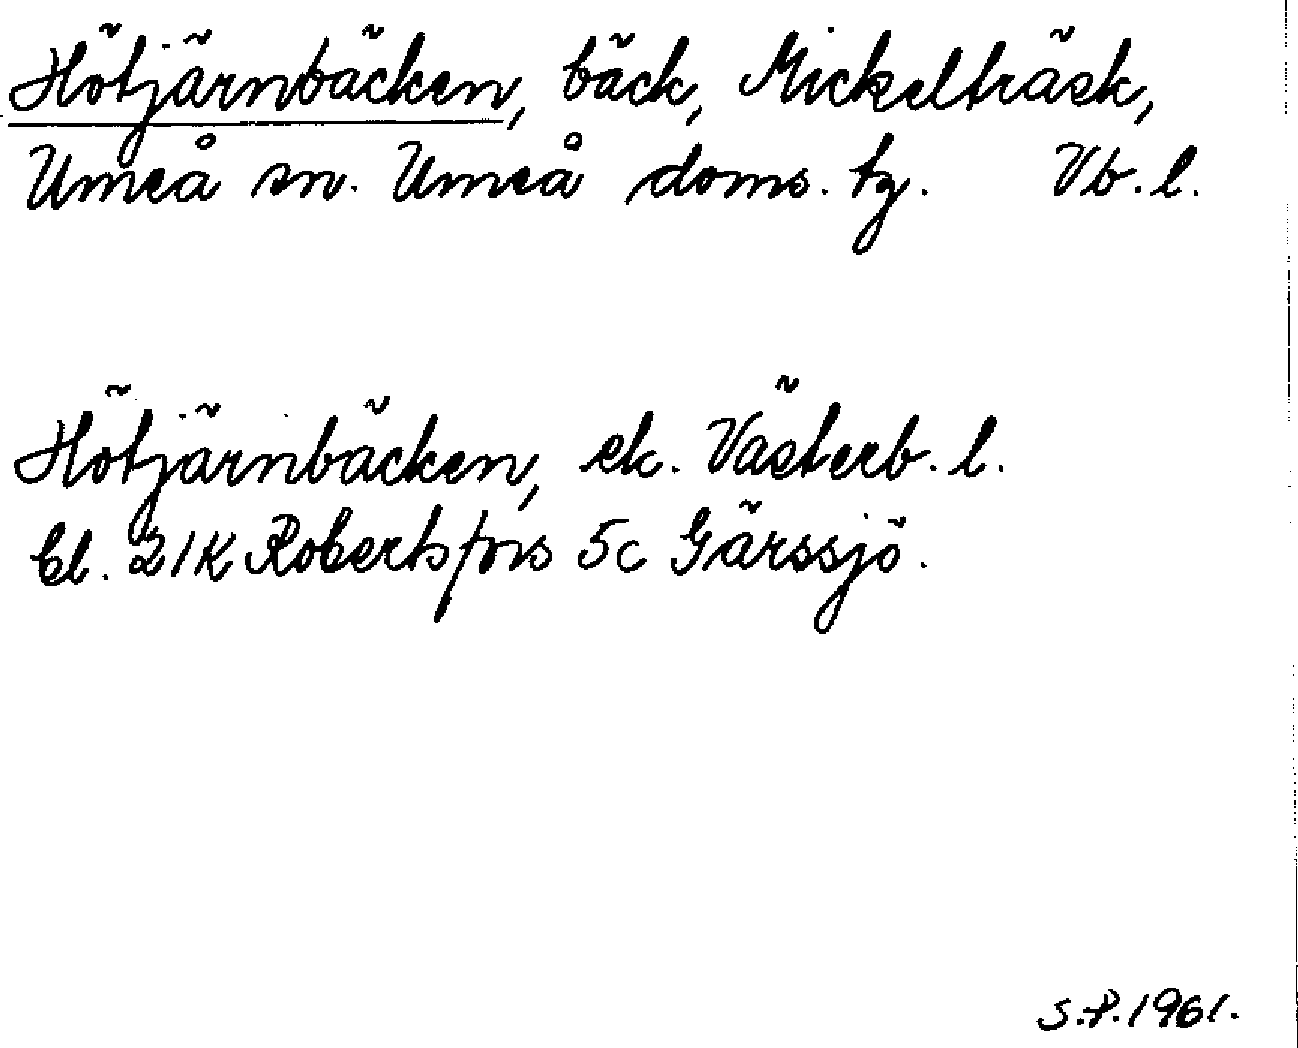 Hötjärnbäcken, bäck, Mickelträsk,
Umeå sn. Umeå doms. tg. Vb. l.
Hötjärnbäcken, ek. Västerb. l.
bl. 21K Robertsfors 5c Gärssjö.
S.P. 1961.